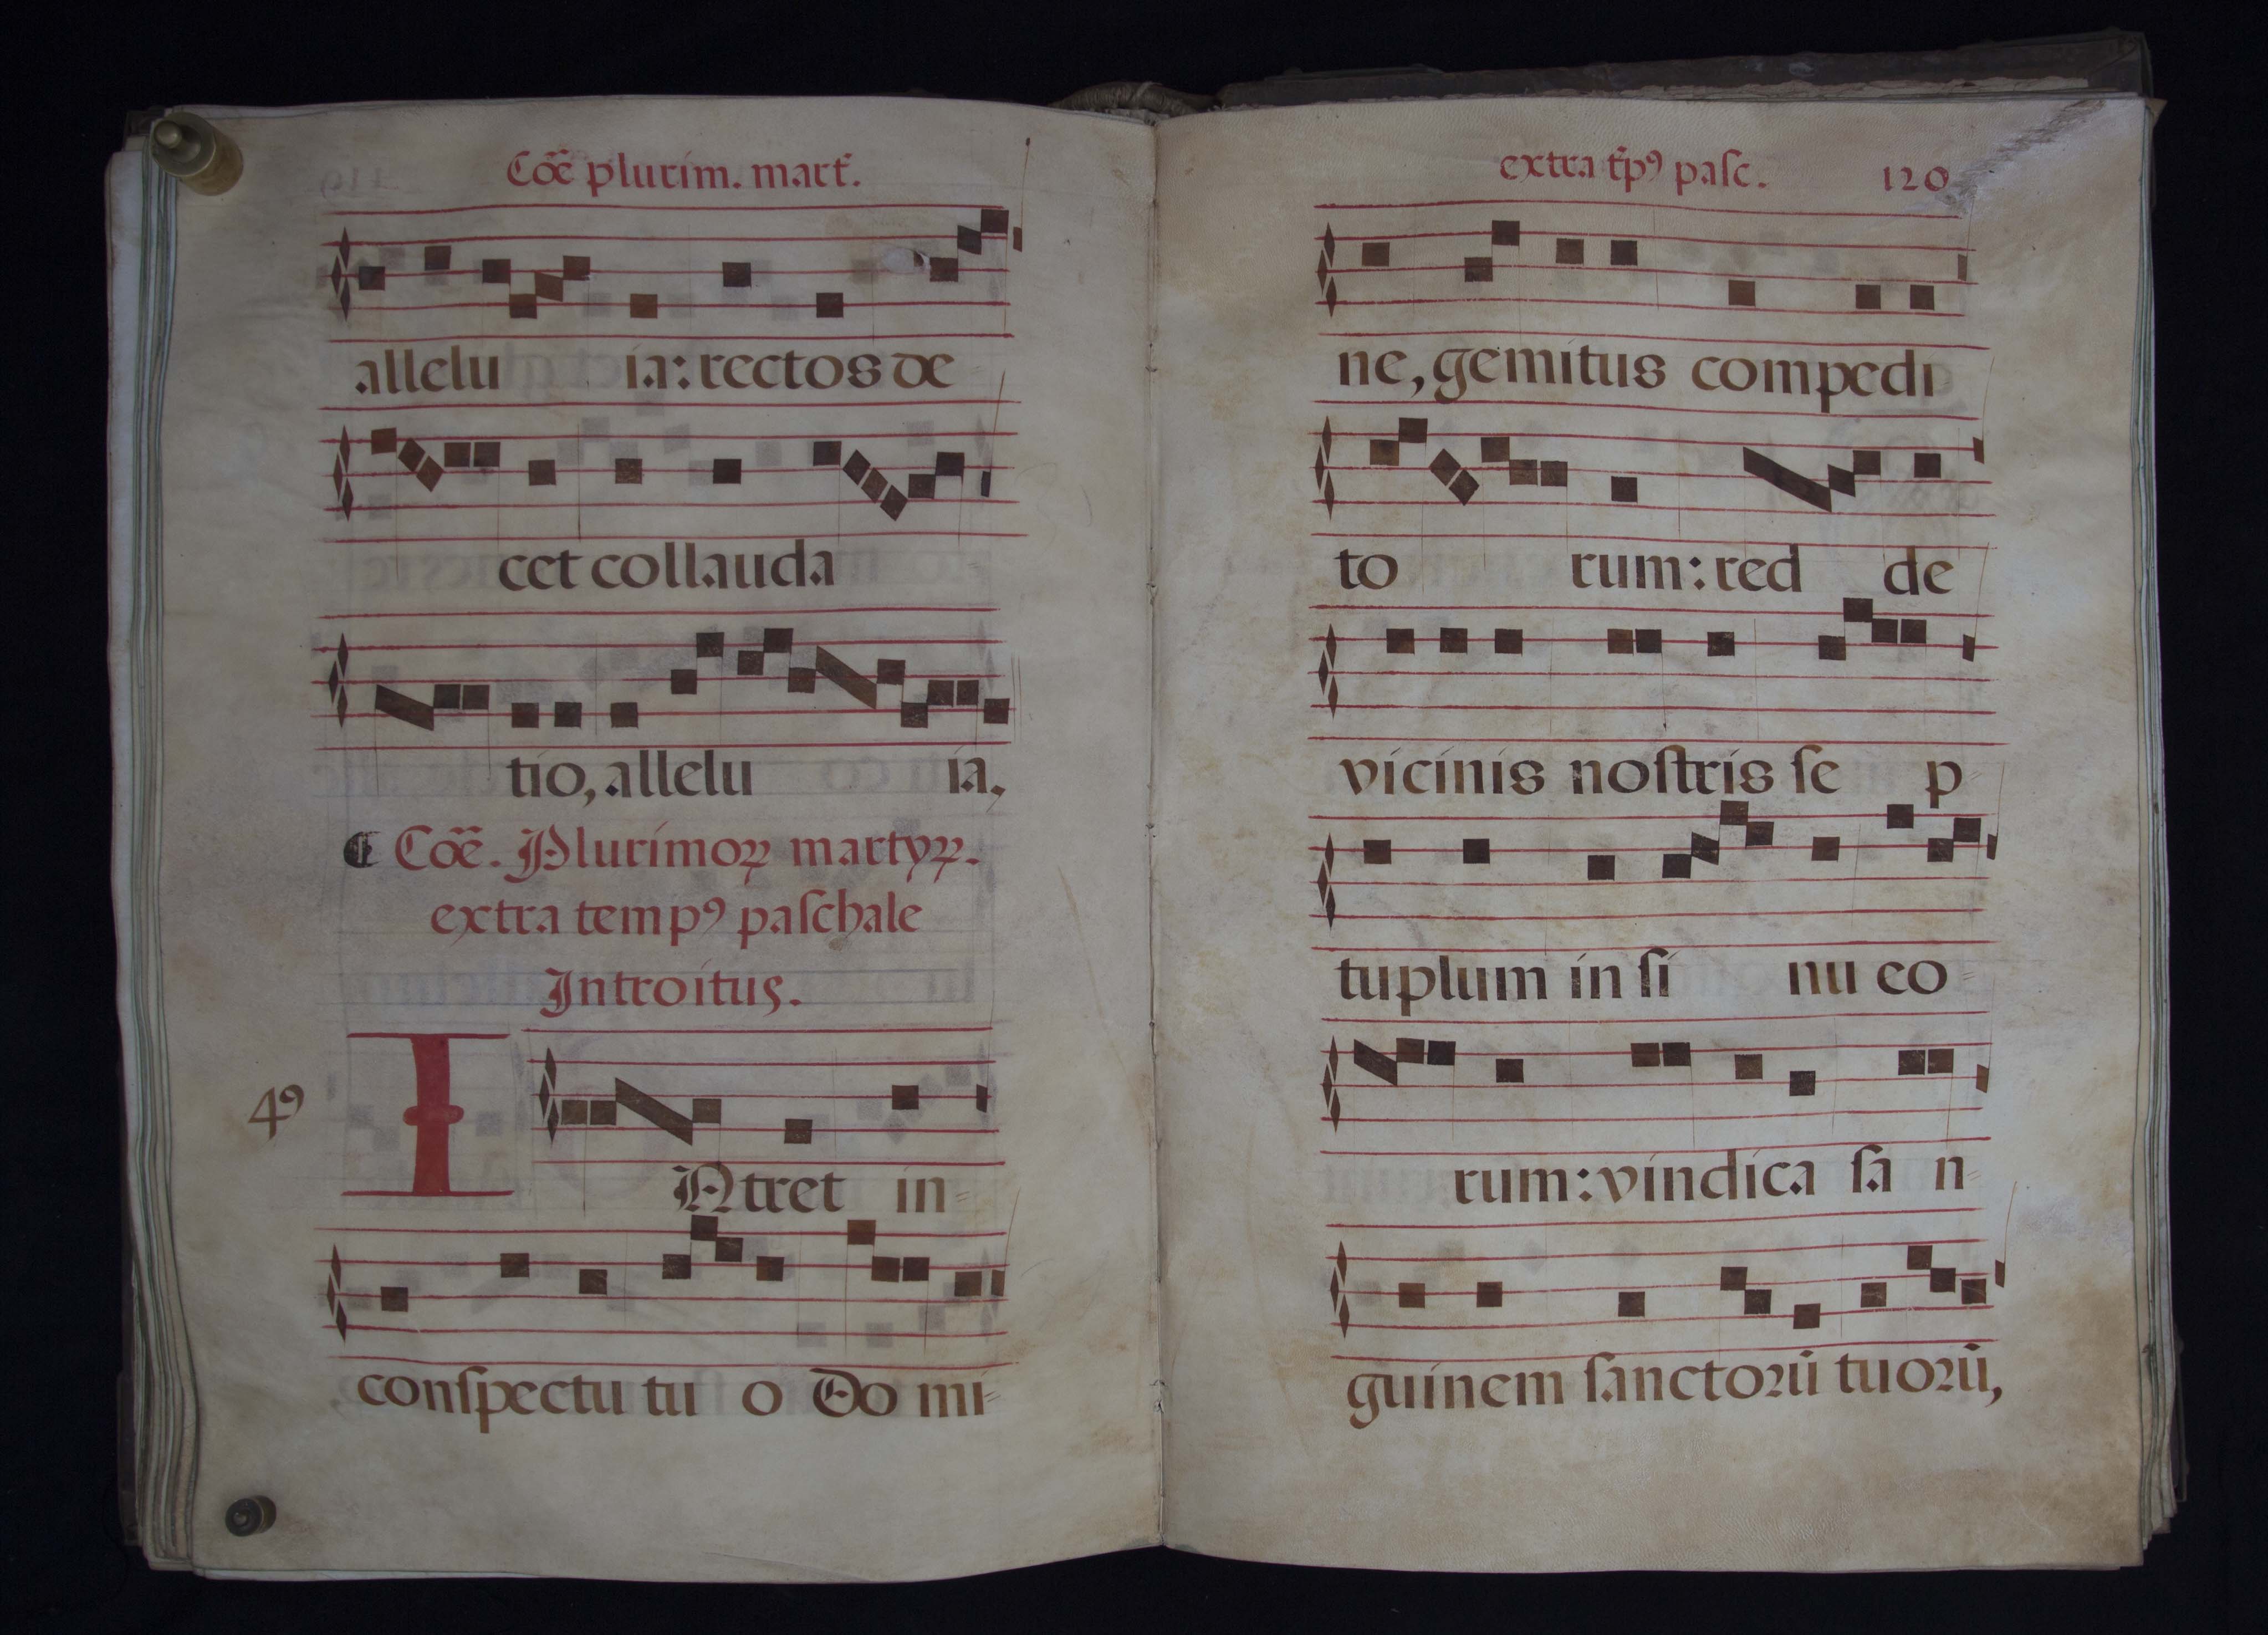 Cōē plurim. mart̃.
allelu ia: rectos de
cet collauda
tio, allelu ia.
¶ Cōē. Plurimoꝝ martyꝝ.
extra tempꝰ paſchale
Introitus.
4ꝰ
I Ntret in-
conſpectu tu o Do mi-
extra tp̃ꝰ paſc. 120
ne, gemitus compedi
to rum: red de
vicinis noſtris ſe p-
tuplum in ſi nu eo-
rum: vindica ſa n-
guinem ſanctoꝛū tuoꝛū,